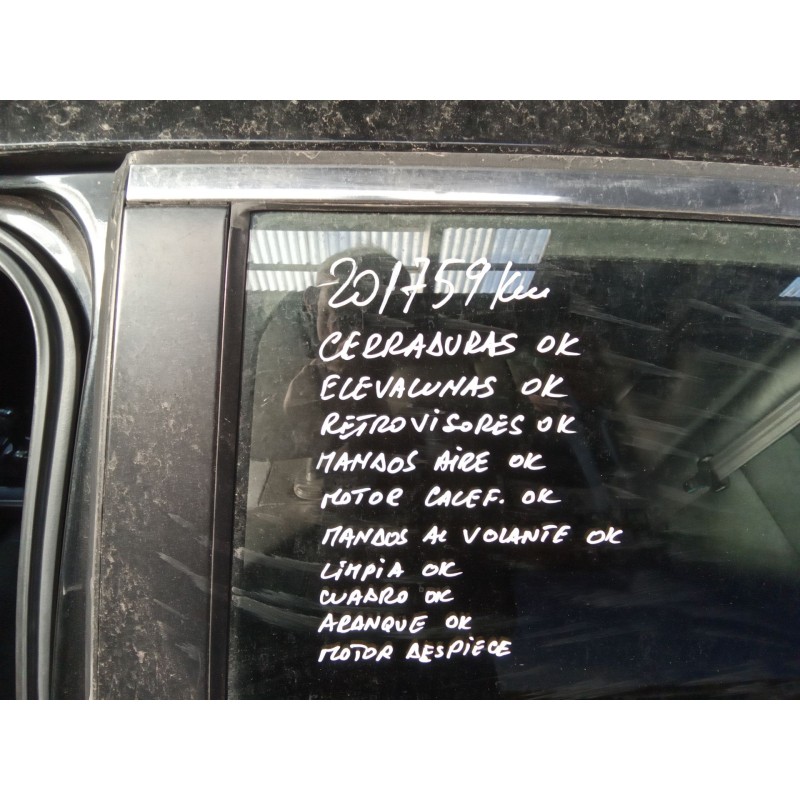 201759 km
CERRADURAS OK
ELEVALUNAS OK
RETROVISORES OK
MANDOS AIRE OK
MOTOR CALEF. OK
MANDOS AL VOLANTE OK
LIMPIA OK
CUADRO OK
ARANQUE OK
MOTOR DESPIECE